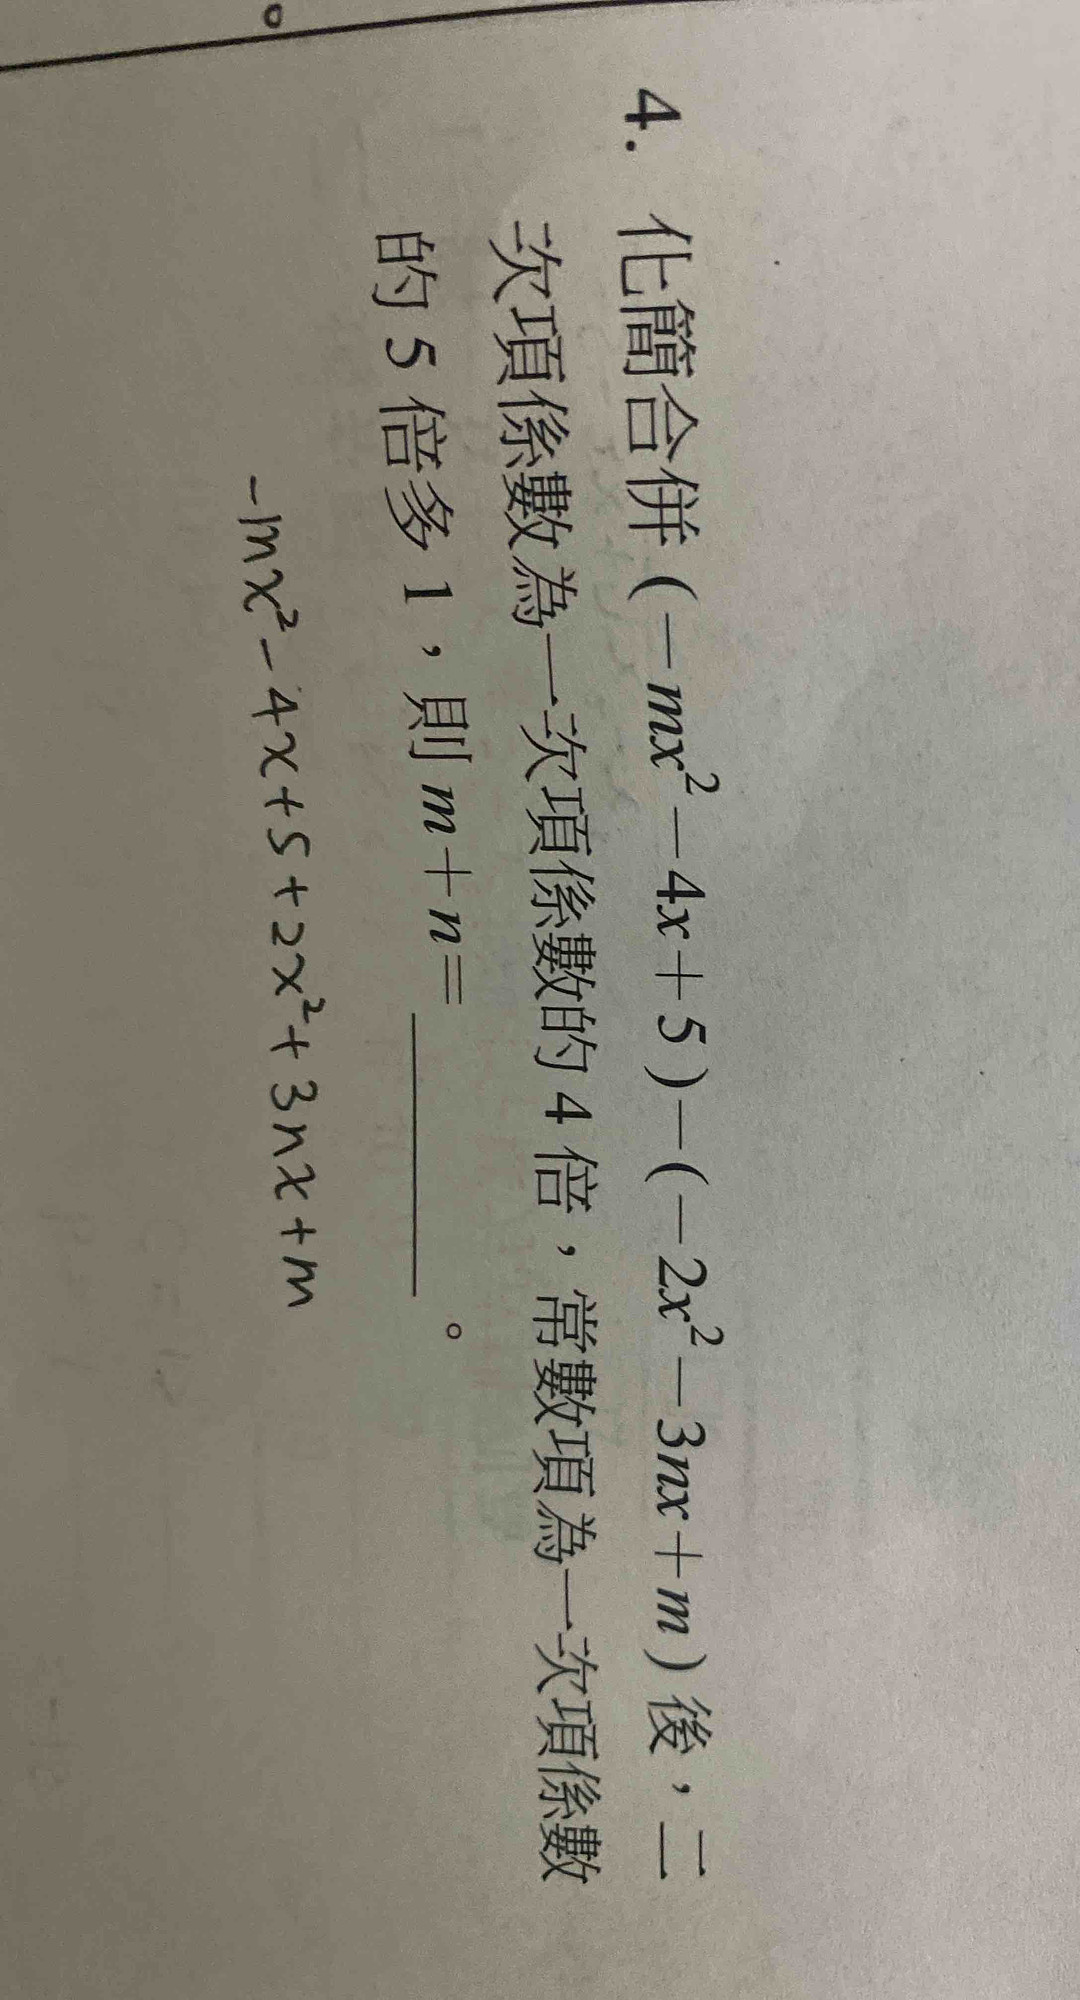 4. 化簡合併 (-mx²-4x+5)-(-2x²-3nx+m) 後，二
次項係數為一次項係數的 4 倍，常數項為一次項係數
的 5 倍多 1，則 m+n=______。
-mx²-4x+5+2x²+3nx+m